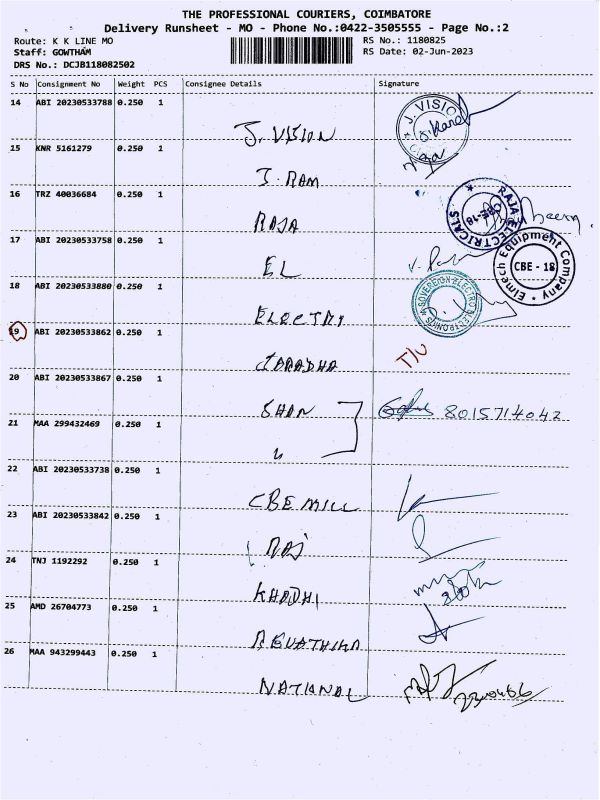 THE PROFESSIONAL COURIERS, COIMBATORE
Delivery Runsheet - MO - Phone No.:0422-3505555 - Page No.:2
Route: K K LINE MO RS No.: 1180825
Staff: GOWTHAM RS Date: 02-Jun-2023
DRS No.: DCJB118082502
S No Consignment No Weight PCS Consignee Details Signature
14 ABI 20230533788 0.250 1
J. VISION
J. VISIO
15 KNR 5161279 0.250 1
J. RAM
16 TRZ 40036684 0.250 1
RAJA
RAJA ELECTRICALS
CBE-18
17 ABI 20230533758 0.250 1
EL
Elmech Equipment Company
CBE - 18
18 ABI 20230533880 0.250 1
ELECTRI
SOVEREIGN ELECTRO ELECTRONICS
19 ABI 20230533862 0.250 1
T/U
20 ABI 20230533867 0.250 1
SHAN
8015714042
21 MAA 299432469 0.250 1
22 ABI 20230533738 0.250 1
CBE MILL
23 ABI 20230533842 0.250 1
RAJ
24 TNJ 1192292 0.250 1
KHADHI
25 AMD 26704773 0.250 1
REVATHIKA
26 MAA 943299443 0.250 1
NATIONAL